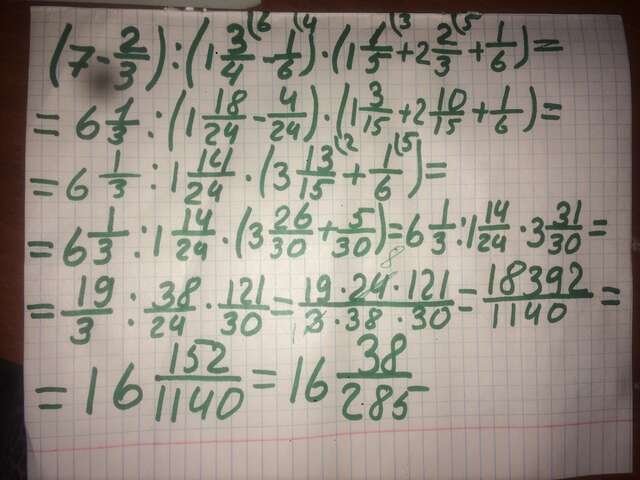 (7 - 2/3) : (1 3/4 (6 - 1/6 (4) · (1 1/5 (3 + 2 2/3 (5 + 1/6) =
= 6 1/3 : (1 18/24 - 4/24) · (1 3/15 + 2 10/15 + 1/6) =
= 6 1/3 : 1 14/24 · (3 13/15 (2 + 1/6 (5) =
= 6 1/3 : 1 14/24 · (3 26/30 + 5/30) = 6 1/3 : 1 14/24 · 3 31/30 =
= 19/3 : 38/24 · 121/30 = 19 · 24 8 · 121 / 1 3 · 38 · 30 = 18392/1140 =
= 16 152/1140 = 16 38/285